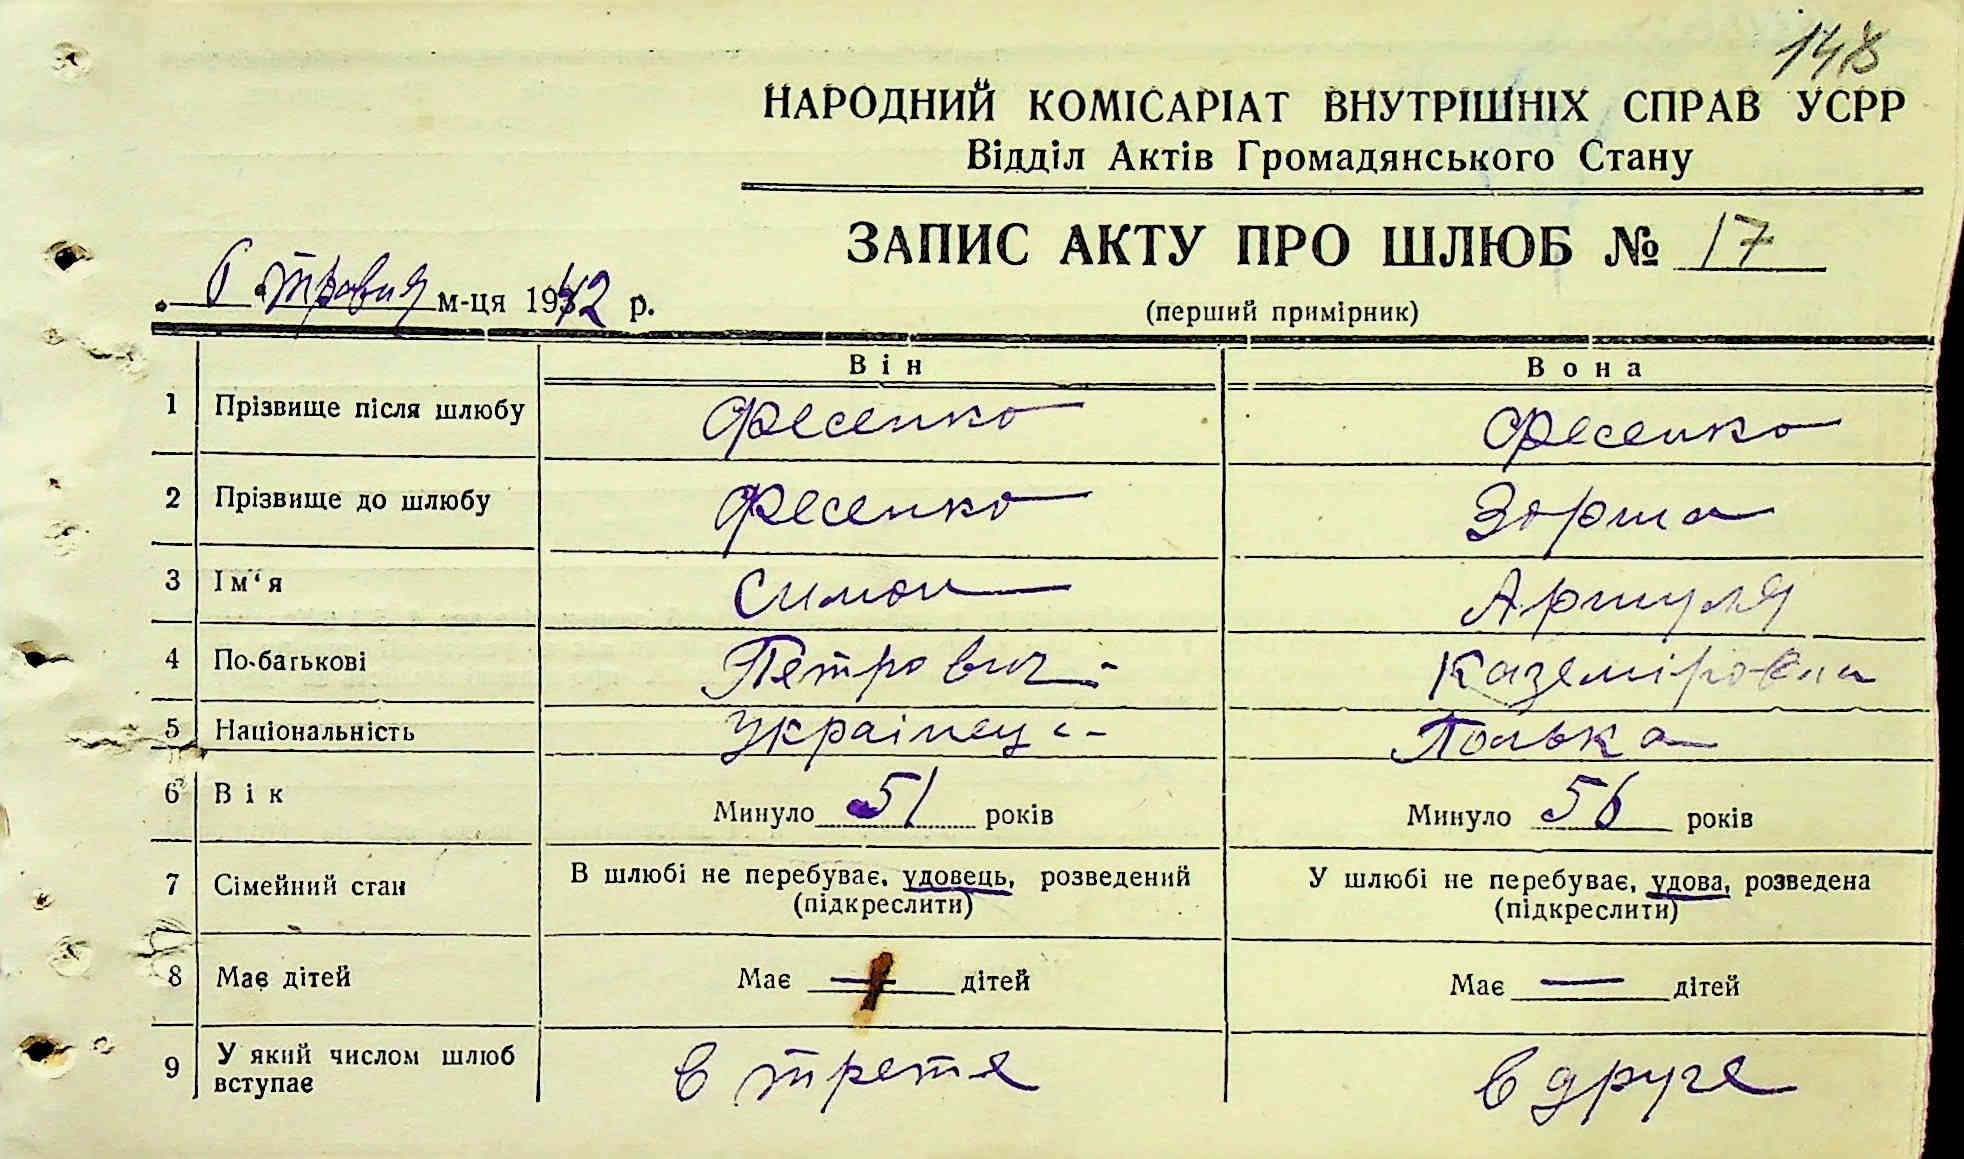 148
НАРОДНИЙ КОМІСАРІАТ ВНУТРІШНІХ СПРАВ УСРР
Відділ Актів Громадянського Стану
ЗАПИС АКТУ ПРО ШЛЮБ № 17
травня м-ця 1942 р.
(перший примірник)
Він Вона
1 Прізвище після шлюбу Фесенко Фесенко
2 Прізвище до шлюбу Фесенко
3 Ім‘я Симон
4 По-батькові Петрович Каземіровна
5 Національність Українець Полька
6 Вік Минуло 51 років Минуло 56 років
7 Сімейний стан В шлюбі не перебуває, удовець, розведений У шлюбі не перебуває, удова, розведена
(підкреслити) (підкреслити)
8 Має дітей Має — дітей Має — дітей
9 У який числом шлюб вступає в третє в друге